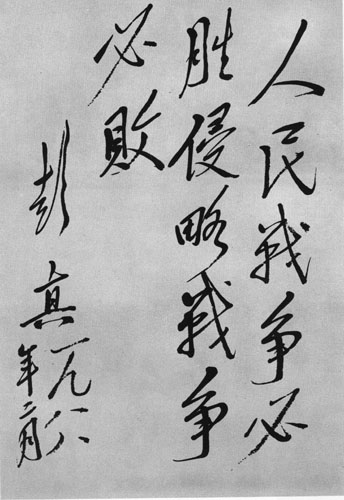 人民戦争必
胜侵略戦争
必敗
彭真
一九八八
年二月